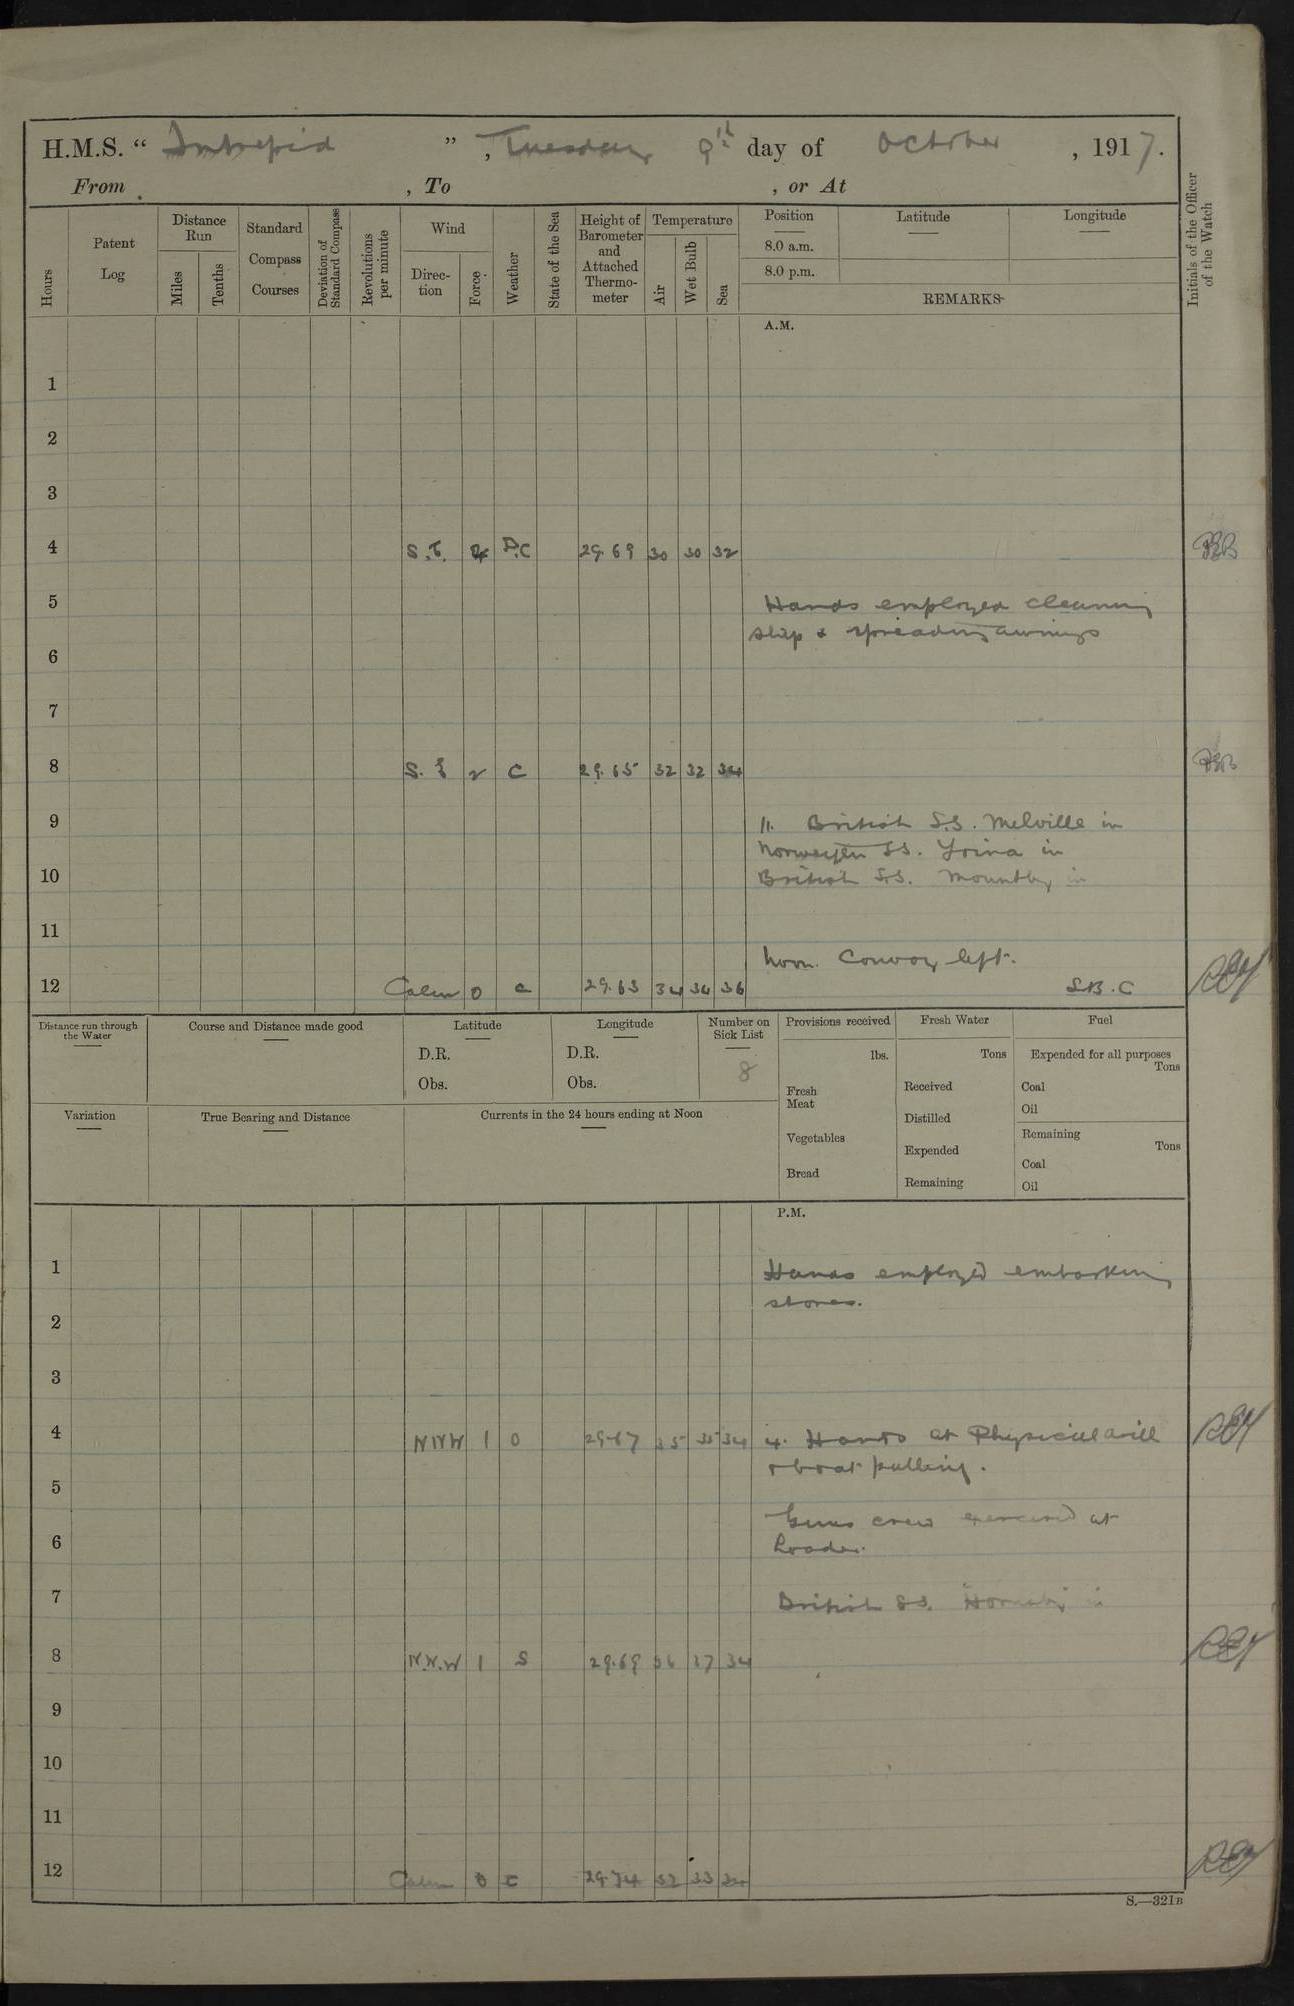 H.M.S. “ Intrepid ” , Tuesday 9th day of October , 1917.
From , To , or At
Hours
Patent Log
Distance Run
Miles
Tenths
Standard Compass Courses
Deviation of Standard Compass
Revolutions per minute
Wind
Direc-tion
Force
Weather
State of the Sea
Height of Barometer and Attached Thermo-meter
Temperature
Air
Wet Bulb
Sea
Position
8.0 a.m.
8.0 p.m.
Latitude
Longitude
REMARKS
Initials of the Officer of the Watch
A.M.
1
2
3
4 S.E. P.C 29.69 30 30 32
5 Hands employed cleaning
ship & spreading awnings
6
7
8 S.E 2 C 29.65 32 32 34
9 11. British S.S. Melville in
Norwegian SS. in
10 British S.S. in
11
Noon. Convoy left.
12 Calm 0 c 29.63 34 34 36 S.B.C
Distance run through the Water
Course and Distance made good
Latitude
D.R.
Obs.
Longitude
D.R.
Obs.
Number on Sick List
8
Provisions received
lbs.
Fresh Meat
Vegetables
Bread
Fresh Water
Tons
Received
Distilled
Expended
Remaining
Fuel
Expended for all purposes
Tons
Coal
Oil
Remaining
Tons
Coal
Oil
Variation
True Bearing and Distance
Currents in the 24 hours ending at Noon
P.M.
1 Hands employed embarking
stores.
2
3
4 NNW 1 0 29.67 35 35 34 4. Hands at Physical drill
& boat pulling.
5
Guns crew exercised at
6 Loader.
7 British SS. Hornsby in
8 N.N.W 1 S 29.69 36 37 34
9
10
11
12 Calm 0 c 29.74 32 33
S.—321B